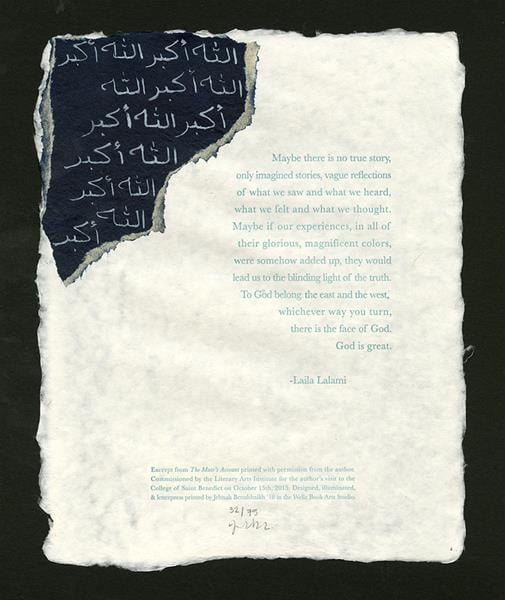 الله أكبر الله أكبر
الله أكبر الله أكبر
أكبر الله أكبر
الله أكبر
الله أكبر
الله أكبر
Maybe there is no true story,
only imagined stories, vague reflections
of what we saw and what we heard,
what we felt and what we thought.
Maybe if our experiences, in all of
their glorious, magnificent colors,
were somehow added up, they would
lead us to the blinding light of the truth.
To God belong the east and the west,
whichever way you turn,
there is the face of God.
God is great.
-Laila Lalami
Excerpt from The Moor's Account printed with permission from the author.
Commissioned by the Literary Arts Institute for the author's visit to the
College of Saint Benedict on October 15th, 2015. Designed, illuminated,
& letterpress printed by Jehnah '18 in the Welle Book Arts Studio.
32/75